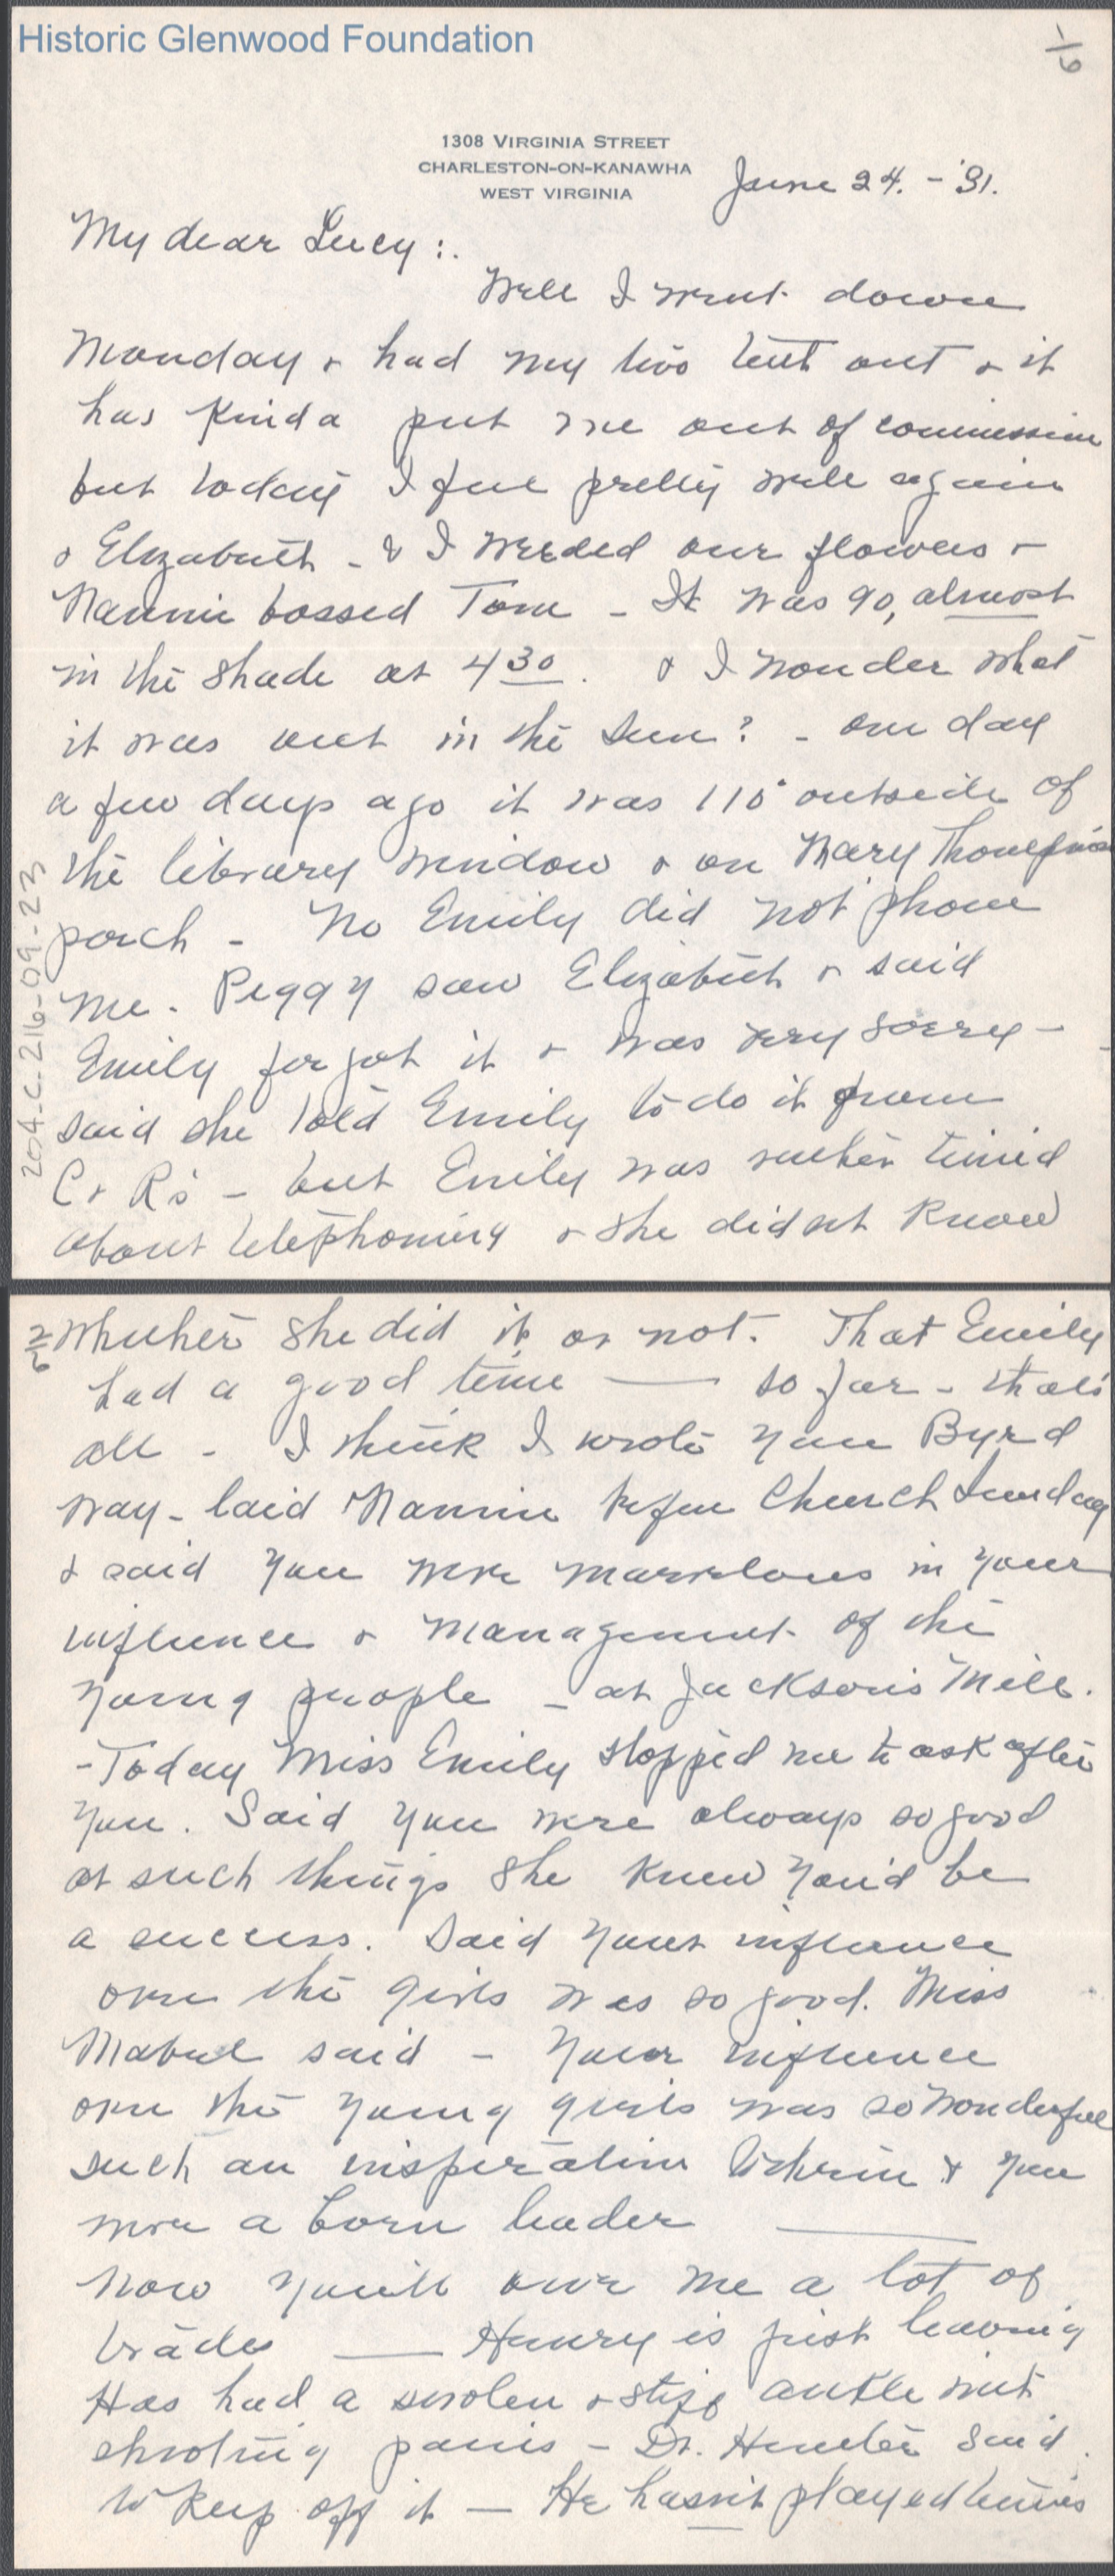 Historic Glenwood Foundation
1/6
1308 VIRGINIA STREET
CHARLESTON-ON-KANAWHA
WEST VIRGINIA
June 24. - '31.
My dear Lucy :.
Well I went down
Monday & had my two teeth out & it
has kinda put me out of commission
but today I feel pretty well again
& Elizabeth - & I weeded our flowers &
Nannie bossed Tom - It was 90, almost
in the shade at 4 30. & I wonder what
it was out in the sun? - One day
a few days ago it was 110° outside of
the library window & on Mary Thompson
porch - No Emily did not phone
me. Peggy saw Elizabeth & said
Emily forgot it & was very sorry -
said she told Emily to do it from
C & R's - but Emily was rather timid
about telephoning & she didn't know
2/6
whether she did it or not. That Emily
had a good time — so far - thats
all - I think I wrote you Byrd
way-laid Nannie before Church Sunday
& said you were marvelous in your
influence & management of the
young people - at Jackson's Mill.
- Today Miss Emily stopped me to ask after
you. Said you were always so good
at such things she knew you'd be
a success. Said your influence
over the girls was so good. Miss
Mabel said - Your influence
over the young girls was so wonderful
such an inspiration to & you
were a born leader —
Now you'll owe me a lot of
trades — Henry is just leaving
Has had a swolen & stiff ankle with
shooting pains - Dr. Hunter said
to keep off it — He hasn't played tennis
204.C.216-09-23